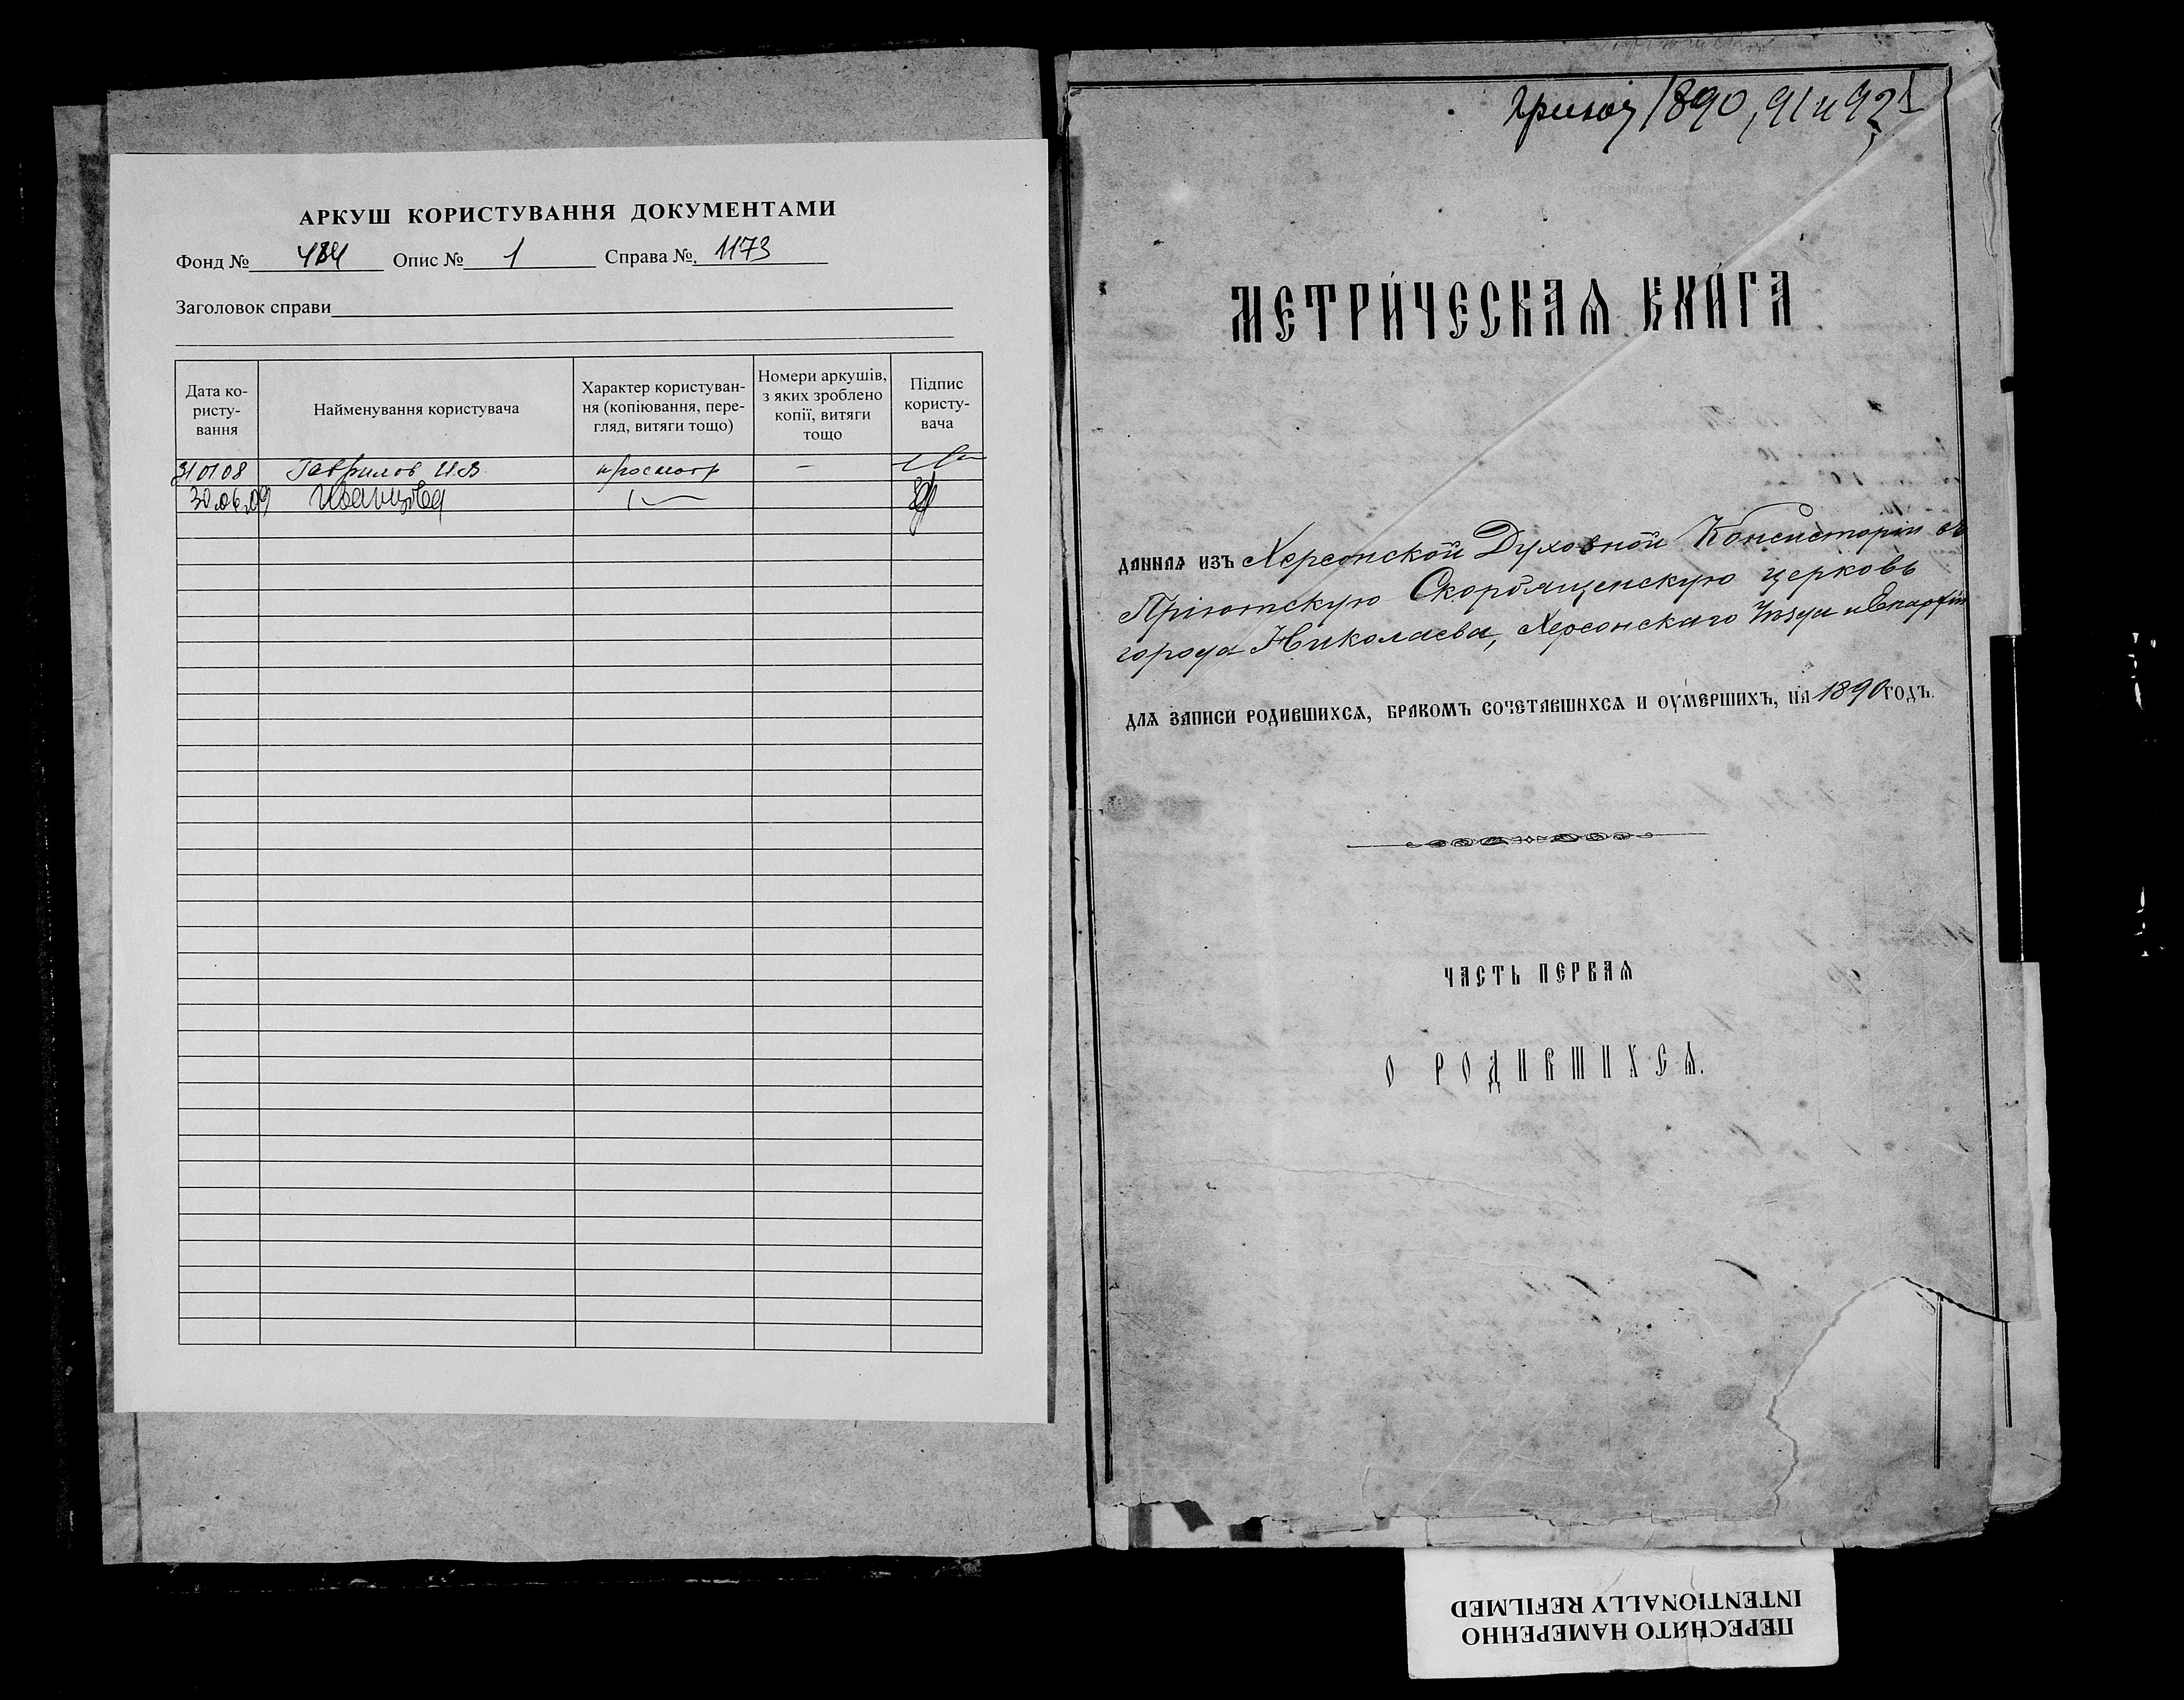 АРКУШ КОРИСТУВАННЯ ДОКУМЕНТАМИ
Фонд № 484 Опис № 1 Справа № 1173
Заголовок справи
Дата ко-
ристу-
вання
Найменування користувача
Характер користуван-
ня (копіювання, пере-
гляд, витяги тощо)
Номери аркушів,
з яких зроблено
копії, витяги
тощо
Підпис
користу-
вача
31 01 08 Гаврилов И.В. просмотр —
30.06.09 Иванцова
1890, 91 и 92
МЕТРИ́ЧЕСКАѦ КНИ́ГА
ДАННАѦ ИЗЪ Херсонской Духовной Консисторіи въ
Пріютскую Скорбященскую церковь
города Николаева, Херсонскаго Уѣзда и Епархіи
ДЛѦ ЗАПИСИ РОДИВШИХСѦ, БРАКОМЪ СОЧЕТАВШИХСѦ И ОУМЕРШИХЪ, НА 1890 ГОДЪ.
ЧАСТЬ ПЕРВАѦ
О РОДИВШИХСѦ.
ПЕРЕСНЯТО НАМЕРЕННО
INTENTIONALLY REFILMED